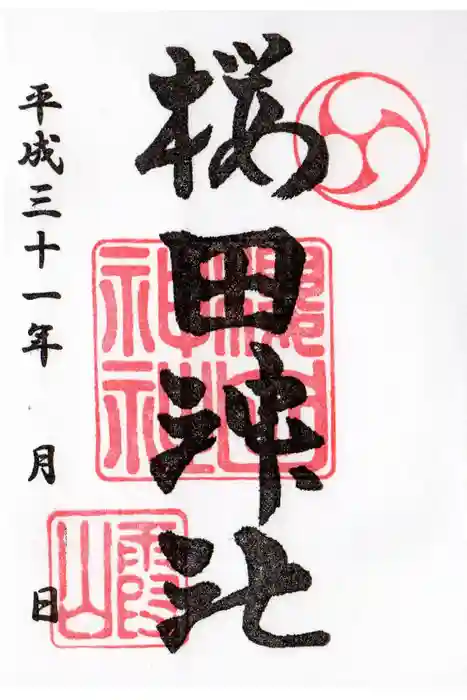 桜田神社
平成三十一年 月 日
櫻田神社
霞山